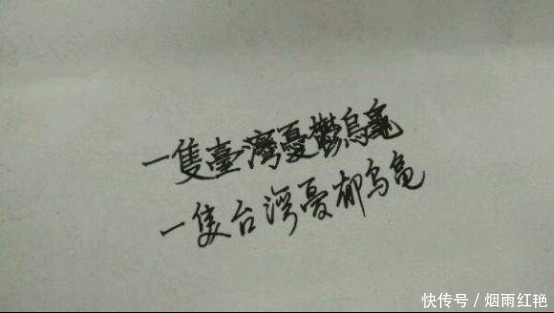 一隻臺灣憂鬱烏龜
一隻台湾憂郁乌龟
快传号/烟雨红艳